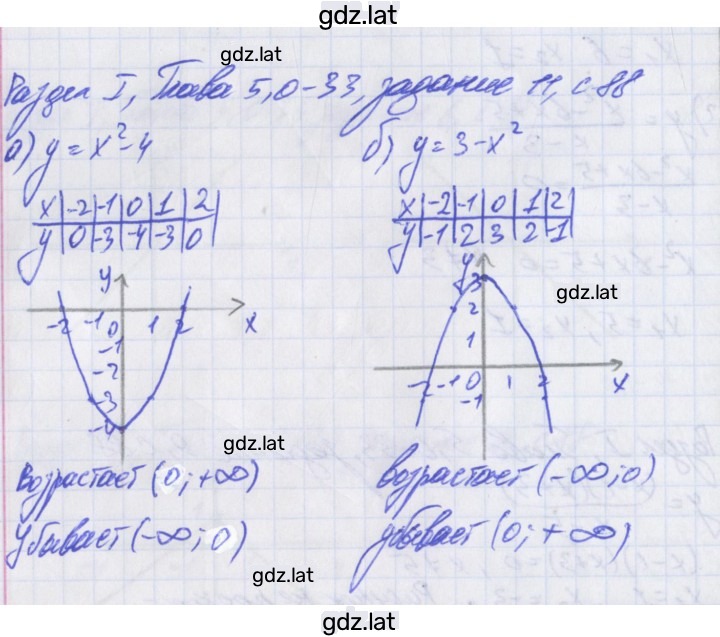 gdz.lat
gdz.lat
Раздел I, Глава 5, 0-33, задание 11, с.88
а) y = x² - 4
б) y = 3 - x²
x | -2 | -1 | 0 | 1 | 2
y | 0 | -3 | -4 | -3 | 0
x | -2 | -1 | 0 | 1 | 2
y | -1 | 2 | 3 | 2 | -1
y
-2 -1 0 1 2 x
-1
-2
-3
-4
y
3
gdz.lat
2
1
-2 -1 0 1 2 x
-1
gdz.lat
возрастает (0; +∞)
убывает (-∞; 0)
возрастает (-∞; 0)
убывает (0; +∞)
gdz.lat
gdz.lat